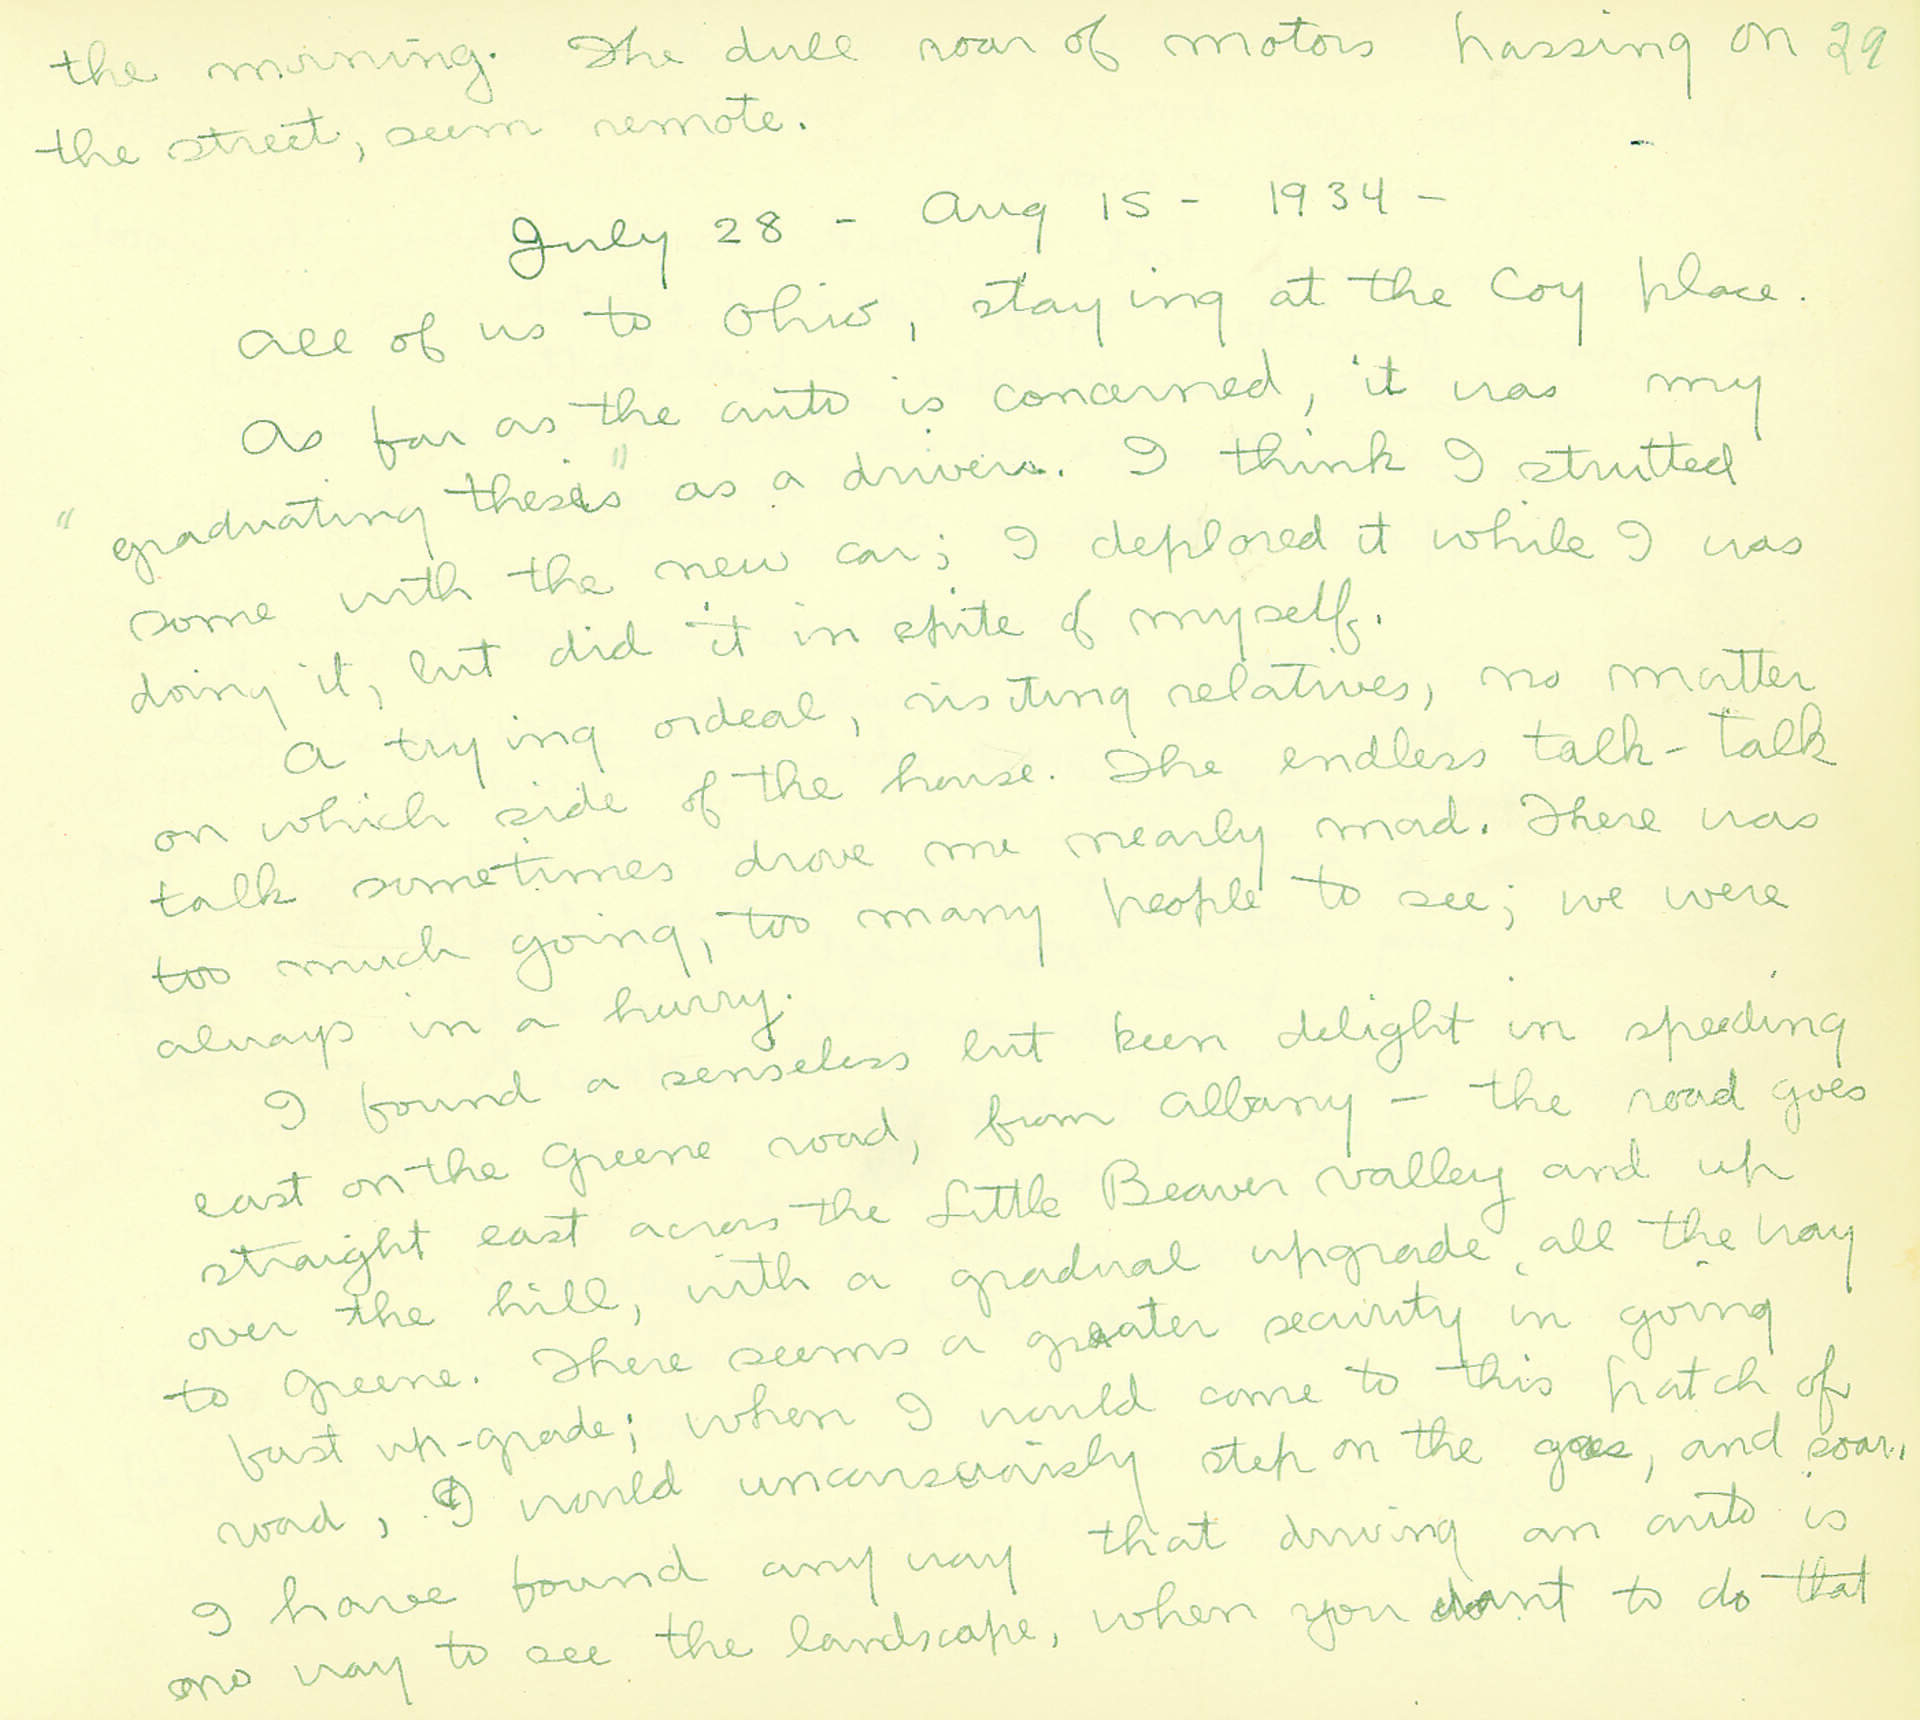 the morning. The dull roar of motors passing on 29
the street, seem remote.
July 28 - Aug 15 - 1934 -
All of us to Ohio, staying at the Coy place.
As far as the auto is concerned, it was my
"graduating thesis" as a driver. I think I strutted
some with the new car; I deplored it while I was
doing it, but did it in spite of myself.
A trying ordeal, visiting relatives, no matter
on which side of the house. The endless talk-talk
talk sometimes drove me nearly mad. There was
too much going, too many people to see; we were
always in a hurry.
I found a senseless but keen delight in speeding
east on the Greene road, from Albany - the road goes
straight east across the Little Beaver valley and up
over the hill, with a gradual upgrade, all the way
to Greene. There seems a greater security in going
fast up-grade; when I would come to this patch of
road, I would unconsciously step on the gas, and soar.
I have found anyway that driving an auto is
no way to see the landscape, when you want to do that